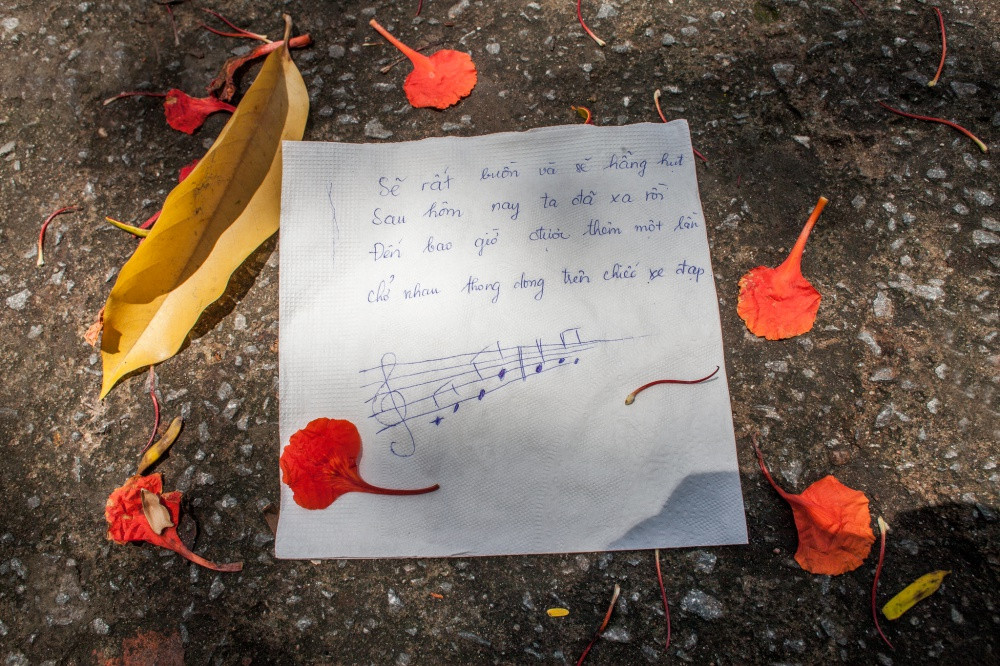 Sẽ rất buồn và sẽ hẫng hụt
Sau hôm nay ta đã xa rồi
Đến bao giờ được thêm một lần
chở nhau thong dong trên chiếc xe đạp